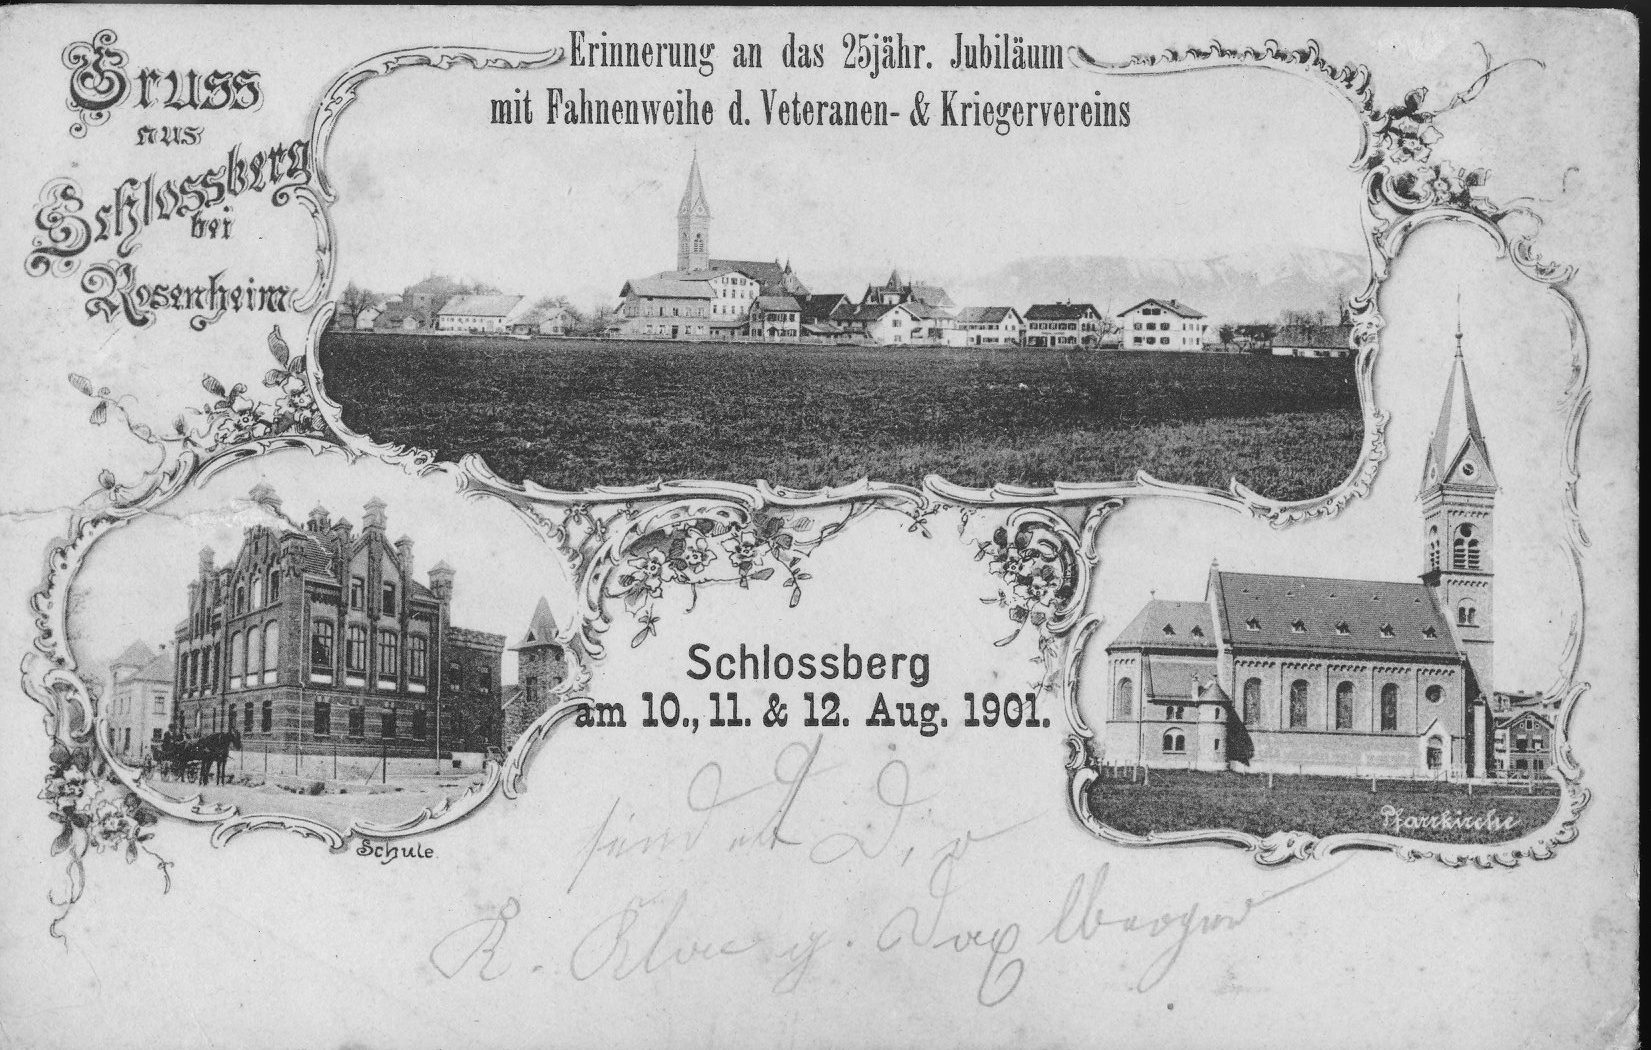 Gruss
aus
Schlossberg
bei
Rosenheim
Erinnerung an das 25jähr. Jubiläum
mit Fahnenweihe d. Veteranen- & Kriegervereins
Schlossberg
am 10., 11. & 12. Aug. 1901.
Schule
Pfarrkirche
sendet
K.